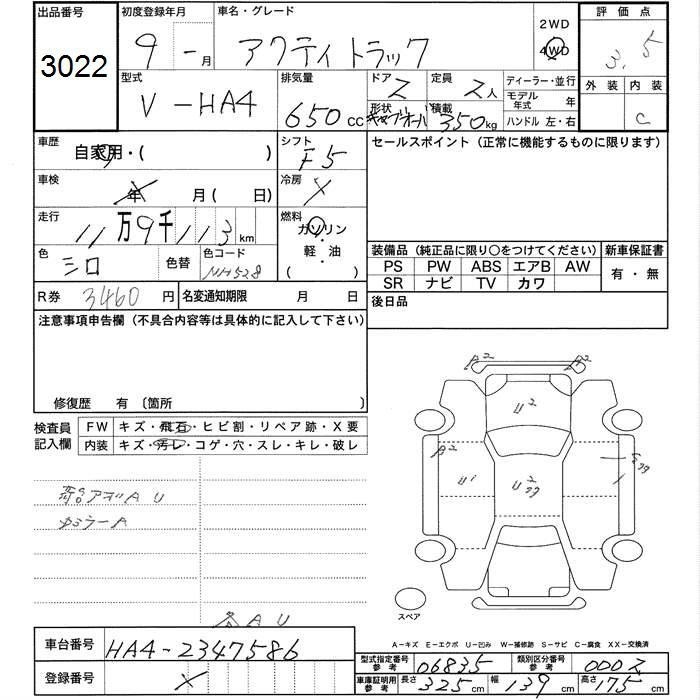 出品番号 初度登録年月 車名・グレード 2WD 評価点
3022 9 - 月 アクティトラック 4WD 3.5
型式 排気量 ドア 2 定員 2人 ディーラー・並行 外装 内装
V-HA4 650 cc 形状 積載 350 kg モデル年式 年 C
ハンドル 左・右
車歴 自家用・( ) シフト F5 セールスポイント (正常に機能するものに限ります)
車検 年 月( 日) 冷房 X
走行 11万9千113 km 燃料 ガソリン・軽・油 ( )
色 シロ 色替 色コード NH528 装備品 (純正品に限り○をつけてください) 新車保証書
PS PW ABS エアB AW 有・無
SR ナビ TV カワ
R券 3460 円 名変通知期限 月 日 後日品
注意事項申告欄 (不具合内容等は具体的に記入して下さい)
修復歴 有 〔箇所 〕
検査員記入欄 FW キズ・飛石・ヒビ割・リペア跡・X要
内装 キズ・汚レ・コゲ・穴・スレ・キレ・破レ
荷台アオリAU
ミラーA
各AU
A2 A2
U2
A2
U1 U2
スペア
A-キズ E-エクボ U-凹み W-補修跡 S-サビ C-腐食 XX-交換済
車台番号 HA4-2347586
型式指定番号 参考 06835 類別区分番号 参考 0002
登録番号 X 車庫証明用 参考 長さ 325 cm 幅 139 cm 高さ 175 cm